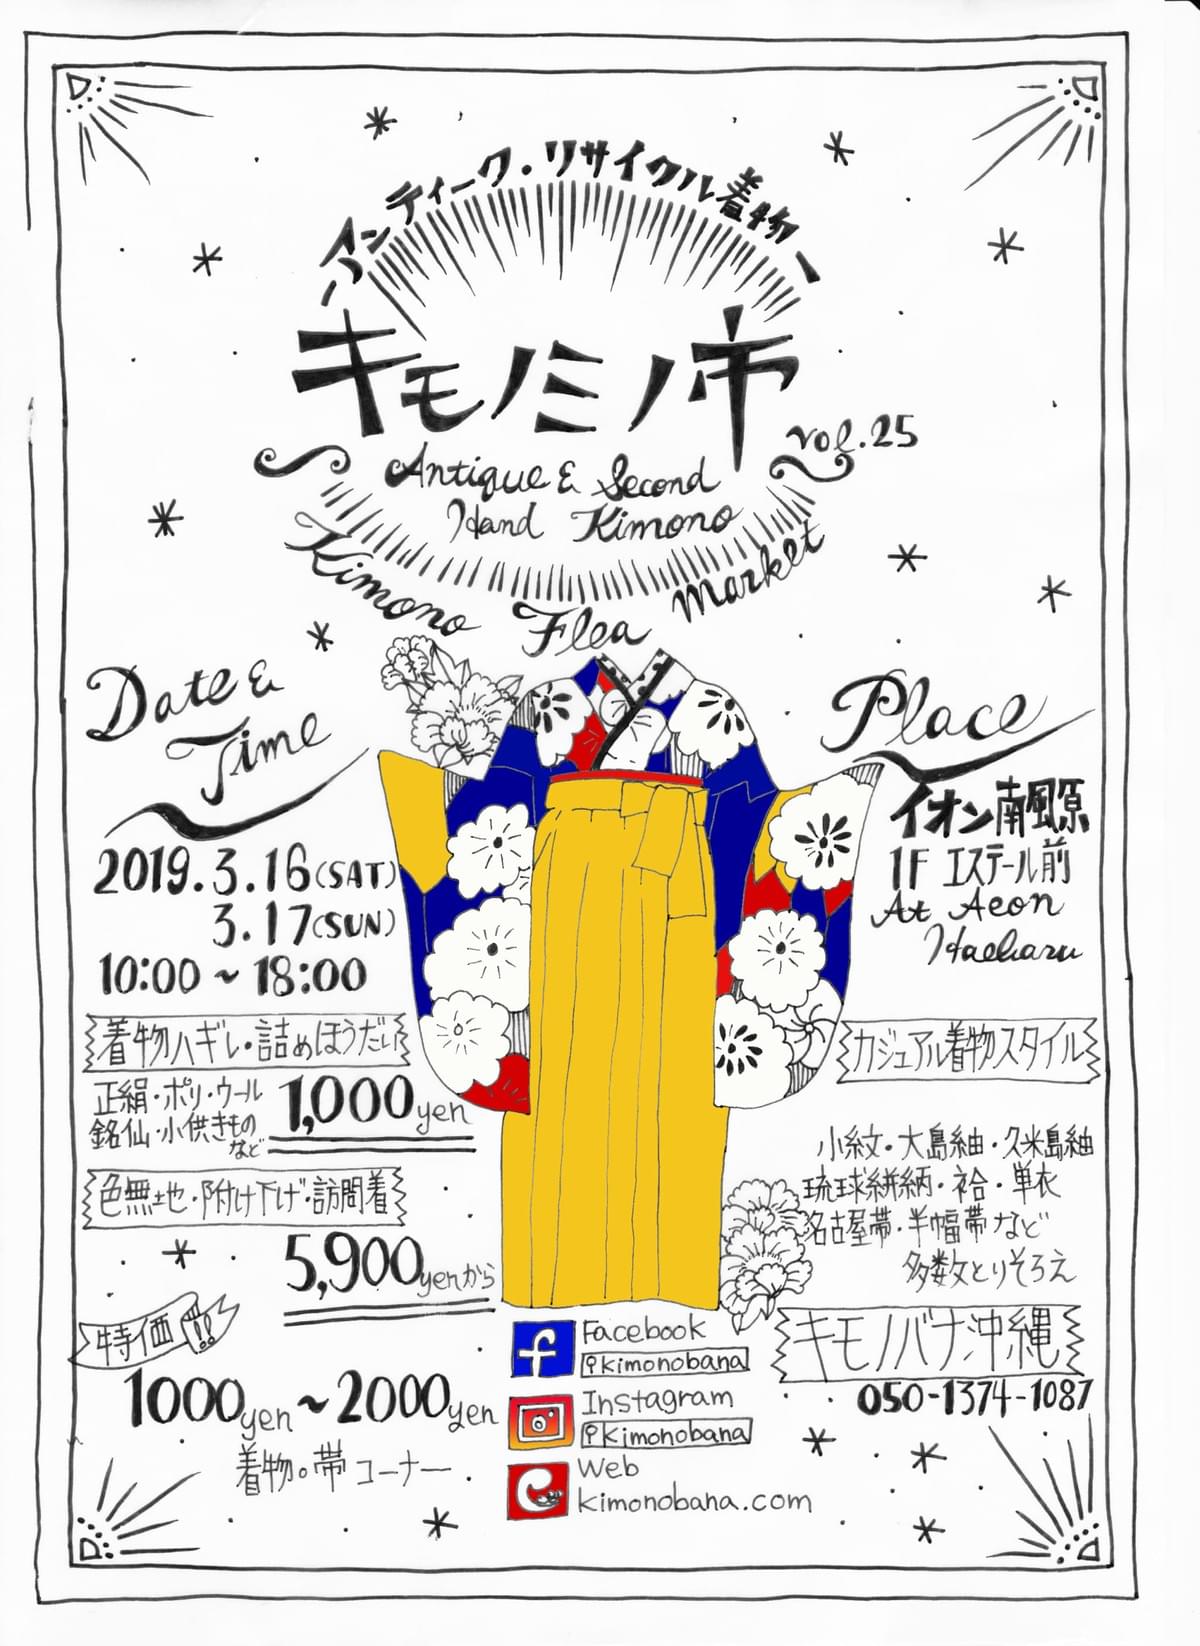 アンティーク・リサイクル着物
キモノミノ市
vol.25
Antique & Second
Hand Kimono
Kimono Flea Market
Date &
Time
2019.3.16(SAT)
3.17(SUN)
10:00~18:00
着物ハギレ・詰めほうだい
正絹・ポリ・ウール
銘仙・小供きもの
など
1,000yen
色無地・附け下げ・訪問着
5,900yenから
特価!!
1000yen~2000yen
着物。帯コーナー
Place
イオン南風原
1F エステール前
At Aeon
Haebaru
カジュアル着物スタイル
小紋・大島紬・久米島紬
琉球絣柄・袷・単衣
名古屋帯・半幅帯など
多数とりそろえ
キモノバナ沖縄
050-1374-1087
Facebook
kimonobana
Instagram
kimonobana
Web
kimonobana.com